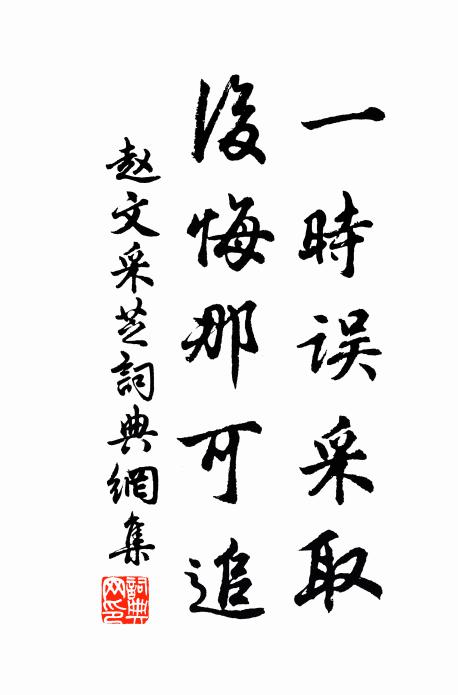 一時误采取
後悔那可追
赵文采芝詞典網集
詞典網印